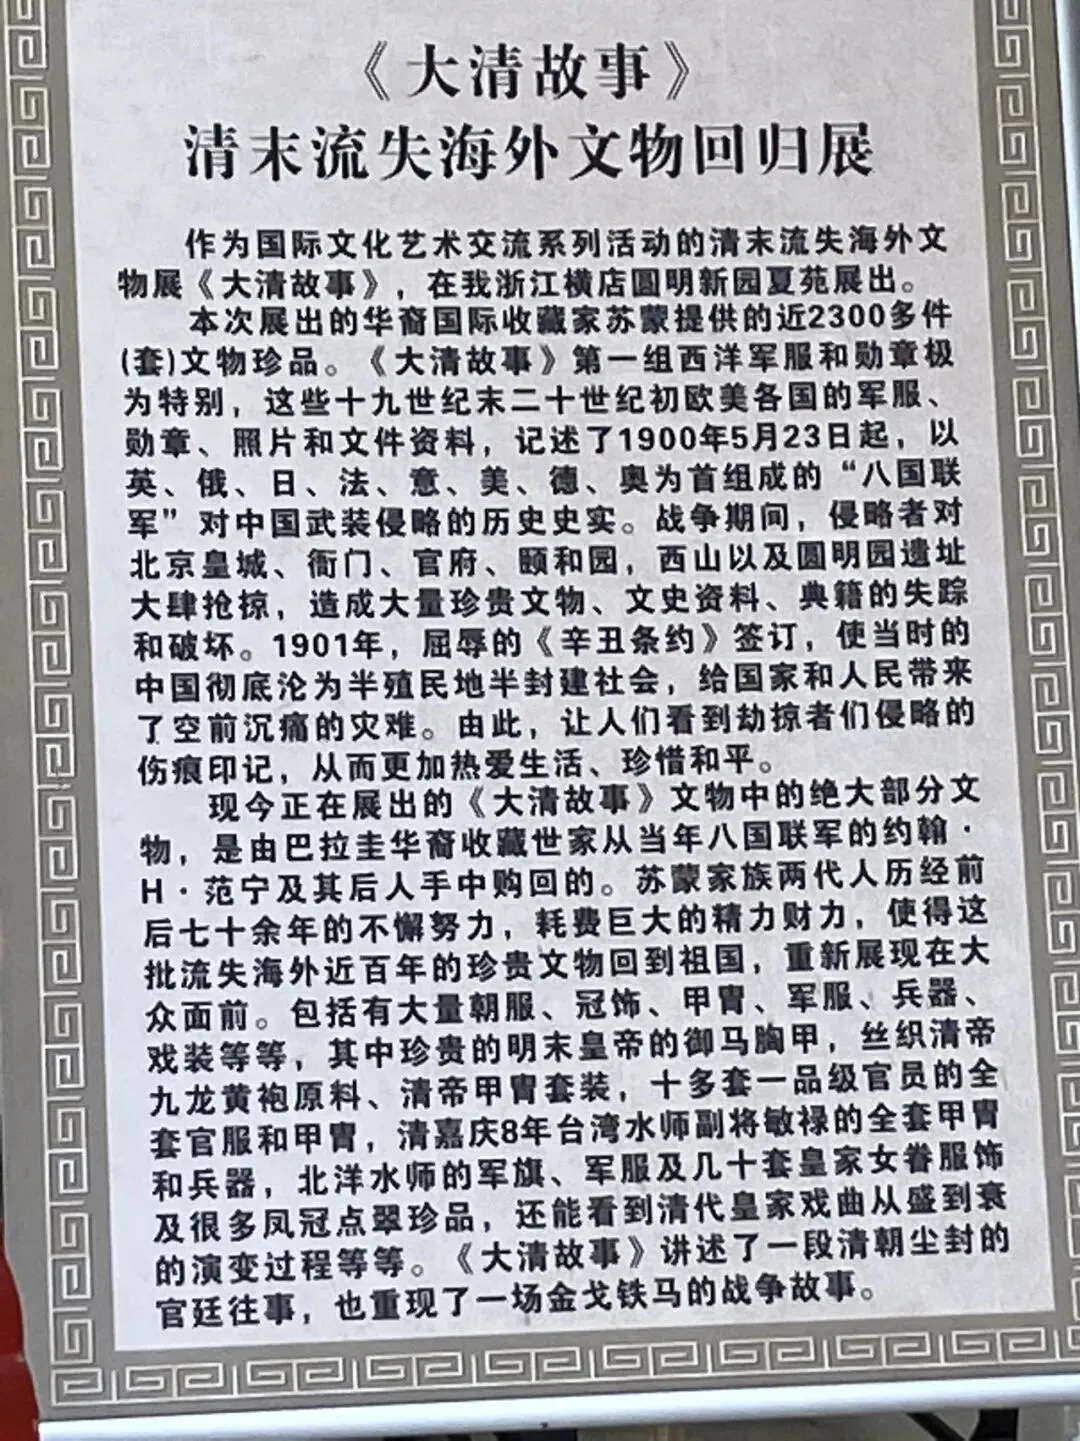 《大清故事》
清末流失海外文物回归展
作为国际文化艺术交流系列活动的清末流失海外文
物展《大清故事》，在我浙江横店圆明新园夏苑展出。
本次展出的华裔国际收藏家苏蒙提供的近2300多件
(套)文物珍品。《大清故事》第一组西洋军服和勋章极
为特别，这些十九世纪末二十世纪初欧美各国的军服、
勋章、照片和文件资料，记述了1900年5月23日起，以
英、俄、日、法、意、美、德、奥为首组成的“八国联
军”对中国武装侵略的历史史实。战争期间，侵略者对
北京皇城、衙门、官府、颐和园，西山以及圆明园遗址
大肆抢掠，造成大量珍贵文物、文史资料、典籍的失踪
和破坏。1901年，屈辱的《辛丑条约》签订，使当时的
中国彻底沦为半殖民地半封建社会，给国家和人民带来
了空前沉痛的灾难。由此，让人们看到劫掠者们侵略的
伤痕印记，从而更加热爱生活、珍惜和平。
现今正在展出的《大清故事》文物中的绝大部分文
物，是由巴拉圭华裔收藏世家从当年八国联军的约翰·
H·范宁及其后人手中购回的。苏蒙家族两代人历经前
后七十余年的不懈努力，耗费巨大的精力财力，使得这
批流失海外近百年的珍贵文物回到祖国，重新展现在大
众面前。包括有大量朝服、冠饰、甲胄、军服、兵器、
戏装等等，其中珍贵的明末皇帝的御马胸甲，丝织清帝
九龙黄袍原料、清帝甲胄套装，十多套一品级官员的全
套官服和甲胄，清嘉庆8年台湾水师副将敏禄的全套甲胄
和兵器，北洋水师的军旗、军服及几十套皇家女眷服饰
及很多凤冠点翠珍品，还能看到清代皇家戏曲从盛到衰
的演变过程等等。《大清故事》讲述了一段清朝尘封的
官廷往事，也重现了一场金戈铁马的战争故事。